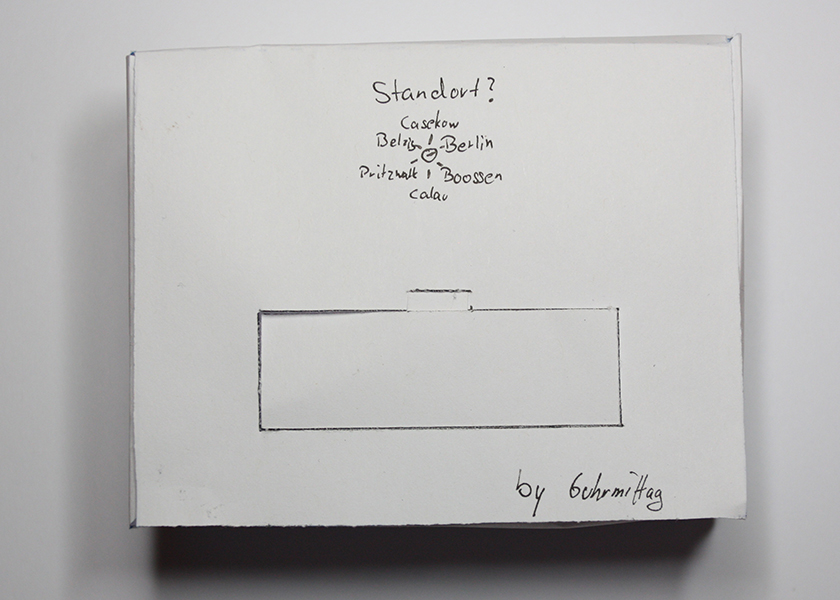 Standort?
Casekow
Belzig Berlin
Pritzwalk Boossen
Calau
by 6uhrmittag